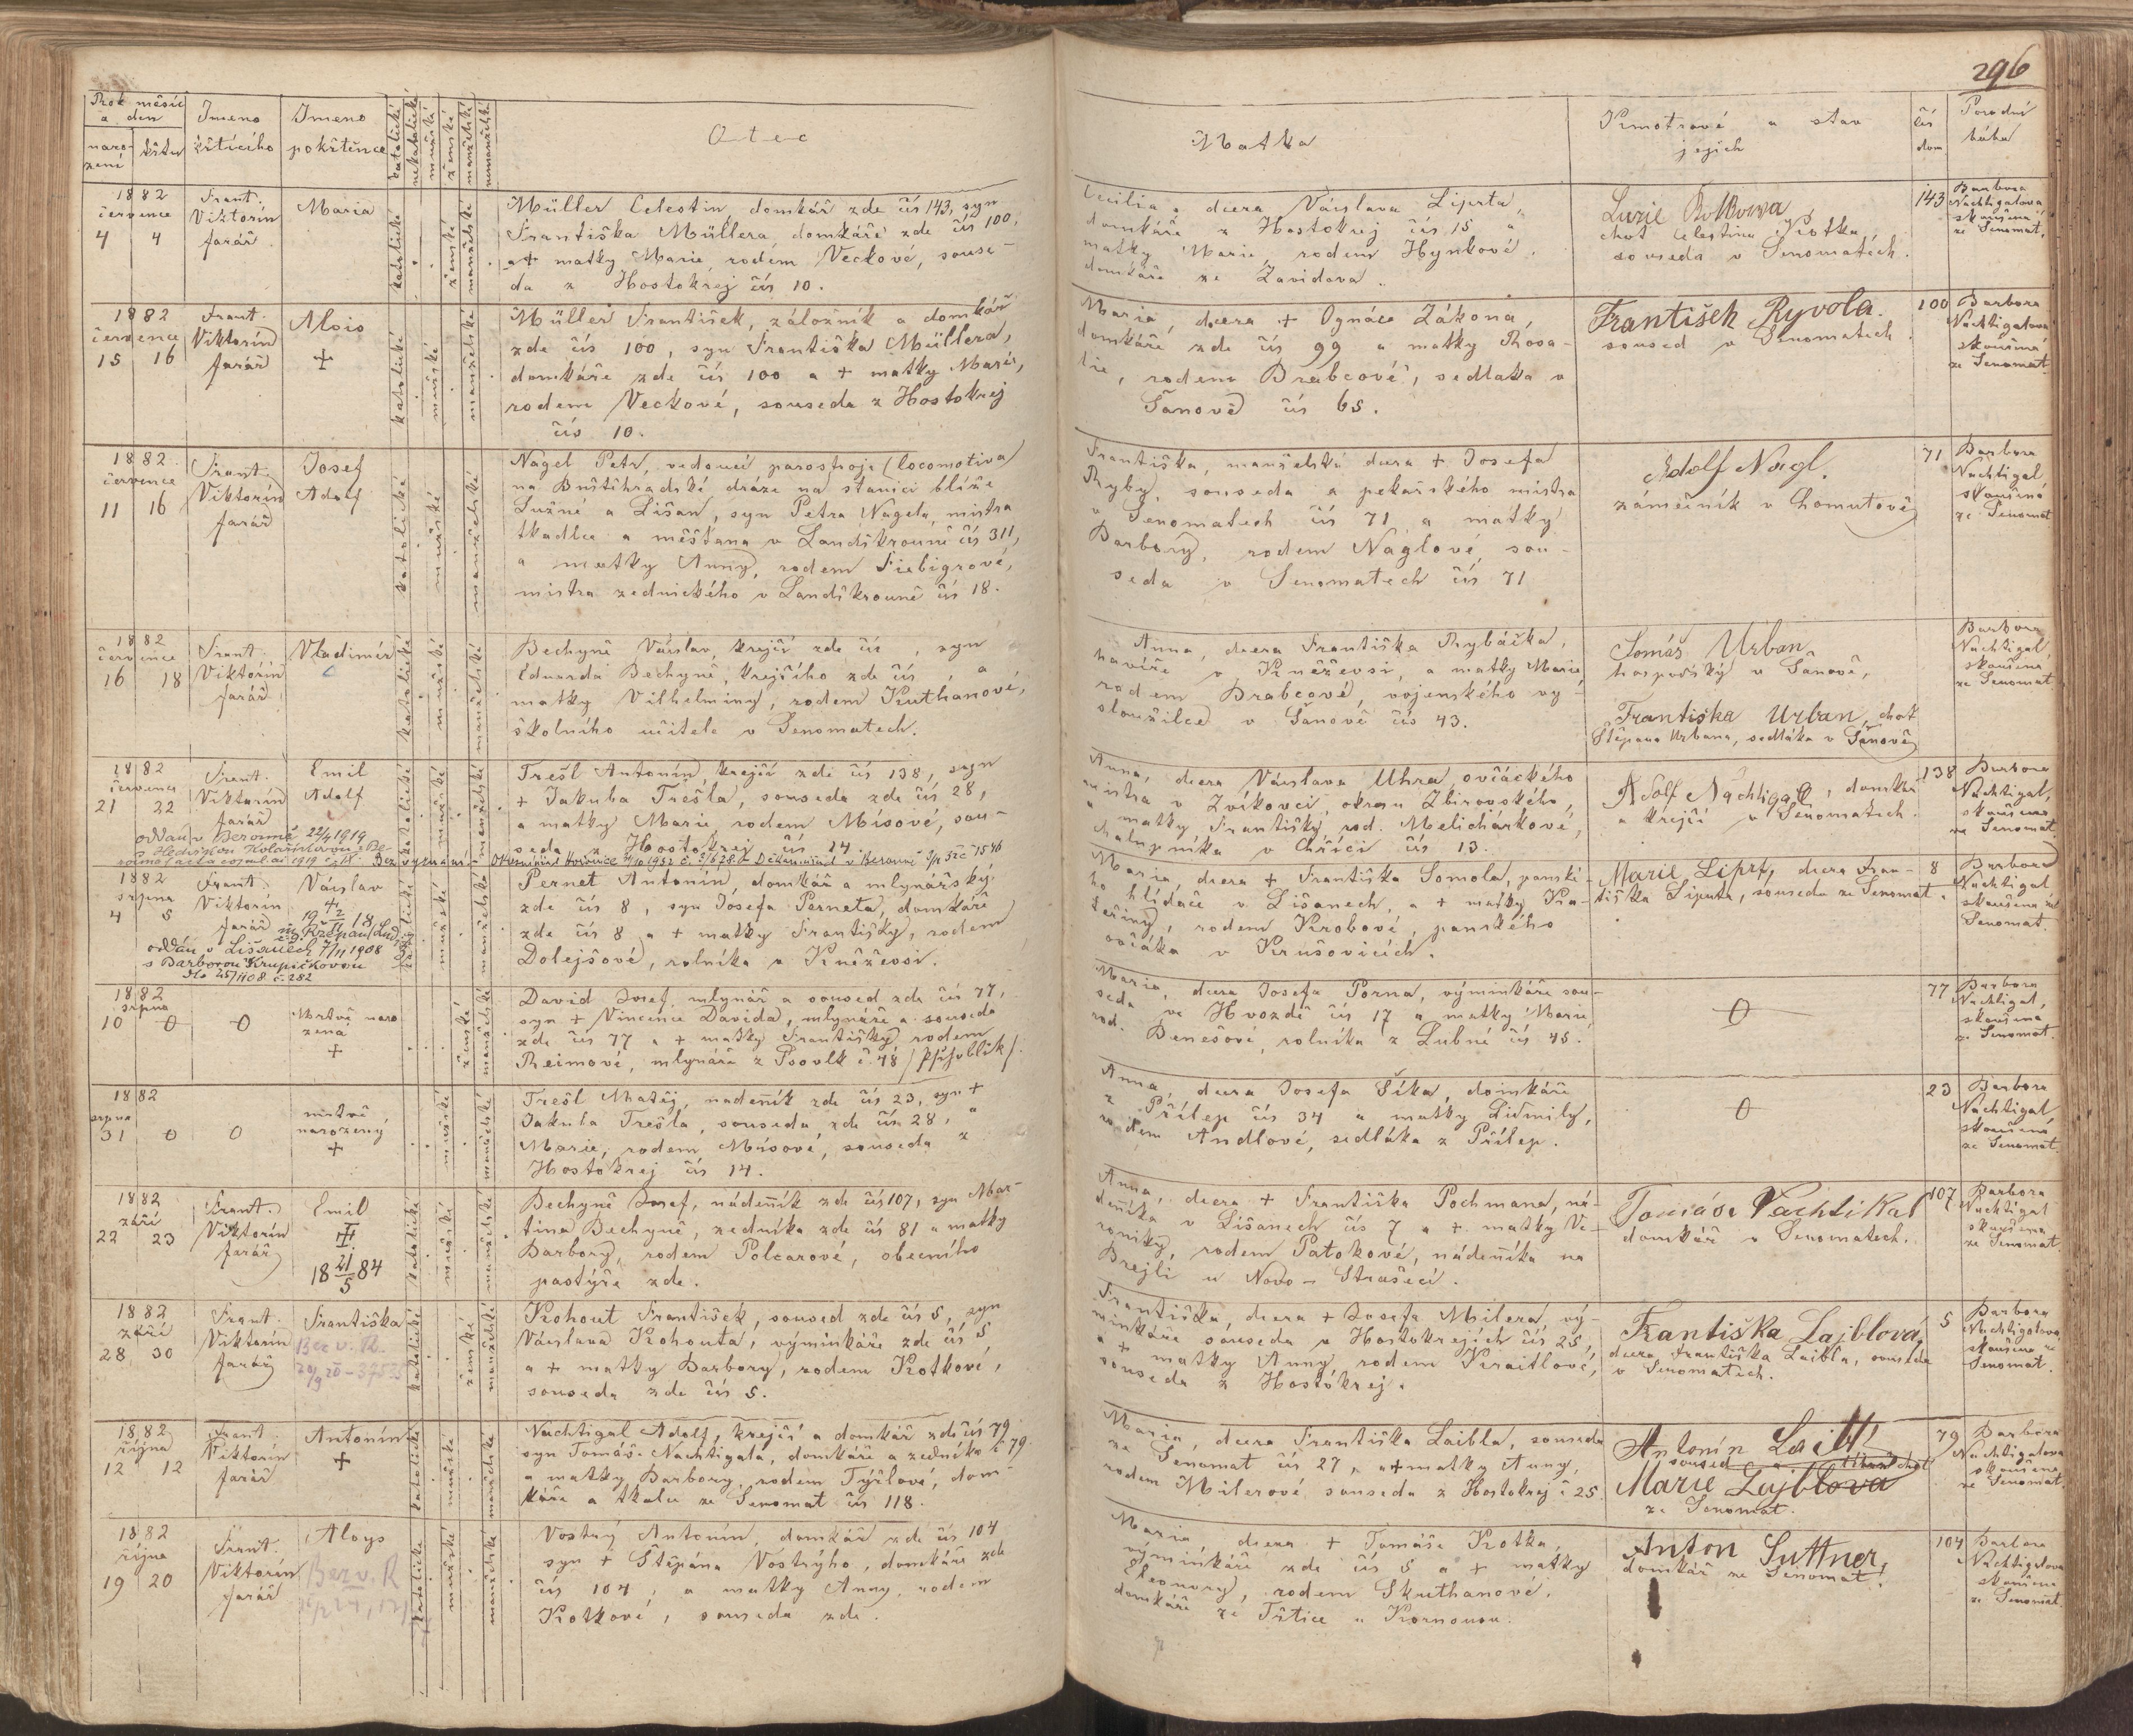 296
Rok měsíc
a den
naro-
zení
křtu
Jmeno
křtícího
Jmeno
pokřtěnce
katolické
nekatolické
mužské
ženské
manželské
nemanželské
Otec
Matka
Kmotrové a stav
jejich
čís
dom
Porodní
bába
1882
července
4 4
Frant.
Viktorín
farář
Maria
katolické
ženské
manželské
Müller Celestin, domkář zde čís 143, syn
Františka Müllera, domkáře zde čís 100,
a + matky Marie, rodem Veckové, souse-
da z Hostokrej čís 10.
Cecilia, dcera Václava Liprta,
domkáře z Hostokrej čís 15 a
matky Marie, rodem Hynkové,
domkáře ze Zavidova.
choť Celestina Kotka,
souseda v Senomatech.
143
Barbora
Nachtigalova
skoušená
ze Senomat.
1882
července
15 16
Frant.
Viktorín
farář
Alois
+
katolické
mužské
manželské
Müller František, záložník a domkář
zde čís 100, syn Františka Müllera,
domkáře zde čís 100 a + matky Marie,
rodem Veckové, souseda z Hostokrej
čís 10.
Maria, dcera + Ognáce Zákona,
domkáře zde čís 99 a matky Rosa-
lie, rodem Brabcové, sedláka v
Šanově čís 65.
František Ryvola.
soused v Senomatech.
100
Barbora
Nachtigalova
skoušená
ze Senomat
1882
července
11 16
Frant.
Viktorín
farář
Josef
Adolf
katolické
mužské
manželské
Nagel Petr, vedoucí parostroje (locomotiva)
na Buštěhradské dráze na stanici blíže
Lužné a Lišan, syn Petra Nagela, mistra
tkadlce a měšťana v Landškrouně čís 311,
a matky Anny, rodem Fiebigrové,
mistra zednického v Landškrouně čís 18.
Františka, manželská dcera + Josefa
Ryby, souseda a pekařského mistra
v Senomatech čís 71 a matky
Barbory, rodem Naglové, sou-
seda v Senomatech čís 71
Adolf Nagl.
zámečník v Chomutově
71
Barbora
Nachtigal
skoušená
ze Senomat
1882
července
16 18
Frant.
Viktorín
farář
Vladimír
katolické
mužské
manželské
Bechyně Václav, krejčí zde čís , syn
Eduarda Bechyně, krejčího zde čís , a
matky Vilhelminy, rodem Kuthanové,
školního učitele v Senomatech.
Anna, dcera Františka Rybáčka,
havíře v Kněževsi, a matky Marie
rodem Brabcové, vojenského vy-
sloužilce v Šanově čís 43.
Tomáš Urban
hospodský v Šanově,
Františka Urban, choť
Štěpana Urbana, sedláka v Šanově
Barbora
Nachtigal,
skoušena
ze Senomat
1882
července
21 22
Frant.
Viktorín
farář
Emil
Adolf
oddán v Berouně 22/4 1919
katolické
mužské
manželské
Trešl Antonín, krejčí zde čís 138, syn
+ Jakuba Trešla, souseda zde čís 28,
a matky Marie, rodem Mísové, sou-
seda z Hostokrej čís 14.
Anna, dcera Václava Uhra, ovčáckého
mistra v Zvíkovci, okresu Zbirovského,
a matky Františky, rod. Melichárkové,
chalupníka v Chříči čís 13.
Adolf Nachtigall, domkář
a krejčí v Senomatech.
138
Barbora
Nachtigal,
skoušena
ze Senomat.
1882
srpna
4 5
Frant.
Viktorín
farář
Václav
oddán v Lišanech 7/11 1908
s Barborou Krupičkovou
katolické
mužské
manželské
Pernet Antonín, domkář a mlynářský
zde čís 8, syn Josefa Perneta, domkáře
zde čís 8 a + matky Františky, rodem
Dolejšové, rolníka v Kněževsi.
Maria, dcera + Františka Somola, panské-
ho hlídače v Lišanech, a + matky Ka-
teřiny, rodem Krobové, panského
ovčáka v Krušovicích.
Marie Liprt, dcera Fran-
tiška Liprta, souseda ze Senomat.
8
Barbora
Nachtigal
skoušena ze
Senomat.
1882
srpna
10 0
0
Mrtvě naro
zená
+
ženské
manželské
David Josef, mlynář a soused zde čís 77,
syn + Vincence Davida, mlynáře a souseda
zde čís 77 a + matky Františky, rodem
Reimové, mlynáře z Psovlk č. 48
Maria, dcera Josefa Porna, výminkáře sou-
seda ve Hvozdě čís 17 a matky Marie
rod. Benešové, rolníka z Lubné čís 45.
0
77
Barbora
Nachtigal,
skoušená
ze Senomat.
1882
srpna
31 0
0
mrtvě
narozený
+
mužské
manželské
Trešl Matěj, nadeník zde čís 23, syn +
Jakuba Trešla, souseda zde čís 28, a
Marie, rodem Mísové, souseda z
Hostokrej čís 14.
Anna, dcera Josefa Šíka, domkáře
z Přílep čís 34 a matky Lidmily,
rodem Andlové, sedláka z Přílep.
0
23
Barbora
Nachtigal,
skoušená
ze Senomat.
1882
září
22 23
Frant.
Viktorín
farář
Emil
18 21/5 84
katolické
mužské
manželské
Bechyně Josef, nádeník zde čís 107, syn Mar-
tina Bechyně, zedníka zde čís 81 a matky
Barbory, rodem Polcarové, obecního
pastýře zde.
Anna, dcera + Františka Pochmana, ná-
deníka v Lišanech čís 7 a + matky Ve-
roniky, rodem Patokové, nádeníka na
Brejli u Novo-Strašecí.
Tomáš Nachtikal
domkář v Senomatech.
107
Barbora
Nachtigal
skoušena
ze Senomat.
1882
září
28 30
Frant.
Viktorín
farář
Františka
katolické
ženské
manželské
Kohout František, soused zde čís 5, syn
Václava Kohouta, výminkáře zde čís 5
a + matky Barbory, rodem Kotkové,
souseda zde čís 5.
Františka, dcera + Josefa Milera, vý-
minkáře souseda v Hostokrejích čís 25,
a + matky Anny, rodem Kraitlové,
souseda z Hostokrej.
Františka Lajblová,
dcera Františka Laibla, souseda
v Senomatech.
5
Barbora
Nachtigalova,
skoušena ze
Senomat.
1882
října
12 12
Frant.
Viktorín
farář
Antonín
+
katolické
mužské
manželské
Nachtigal Adolf, krejčí a domkář zde čís 79
syn Tomáše Nachtigala, domkáře a zedníka č 79
a matky Barbory, rodem Týřlové, dom-
káře a tkalce ze Senomat čís 118.
Maria, dcera Františka Laibla, souseda
ze Senomat čís 27, a + matky Anny,
rodem Milerové souseda z Hostokrej č 25.
Antonín
soused
Marie Lajblova
ze Senomat.
79
Barbora
Nachtigalova
skoušena
ze Senomat.
1882
října
19 20
Frant.
Viktorín
farář
Aloys
katolické
mužské
manželské
Vostrý Antonín, domkář zde čís 104
syn + Štěpána Vostrýho, domkáře zde
čís 104, a matky Anny, rodem
Kotkové, souseda zde.
Maria, dcera + Tomáše Kotka,
výminkáře zde čís 5 a + matky
Eleonory, rodem Skuthanové,
domkáře ze Třtice
Anton Suttner,
domkář ze Senomat.
104
Barbora
Nachtigalova
skoušena
ze Senomat.